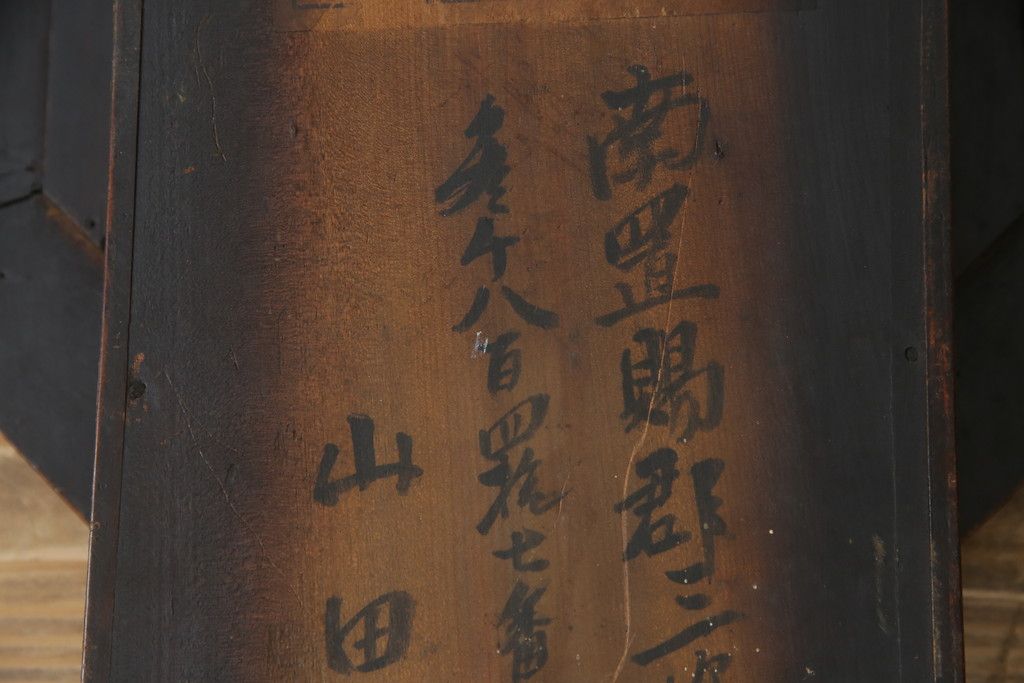 南置賜郡三
参千八百四拾七番
山田